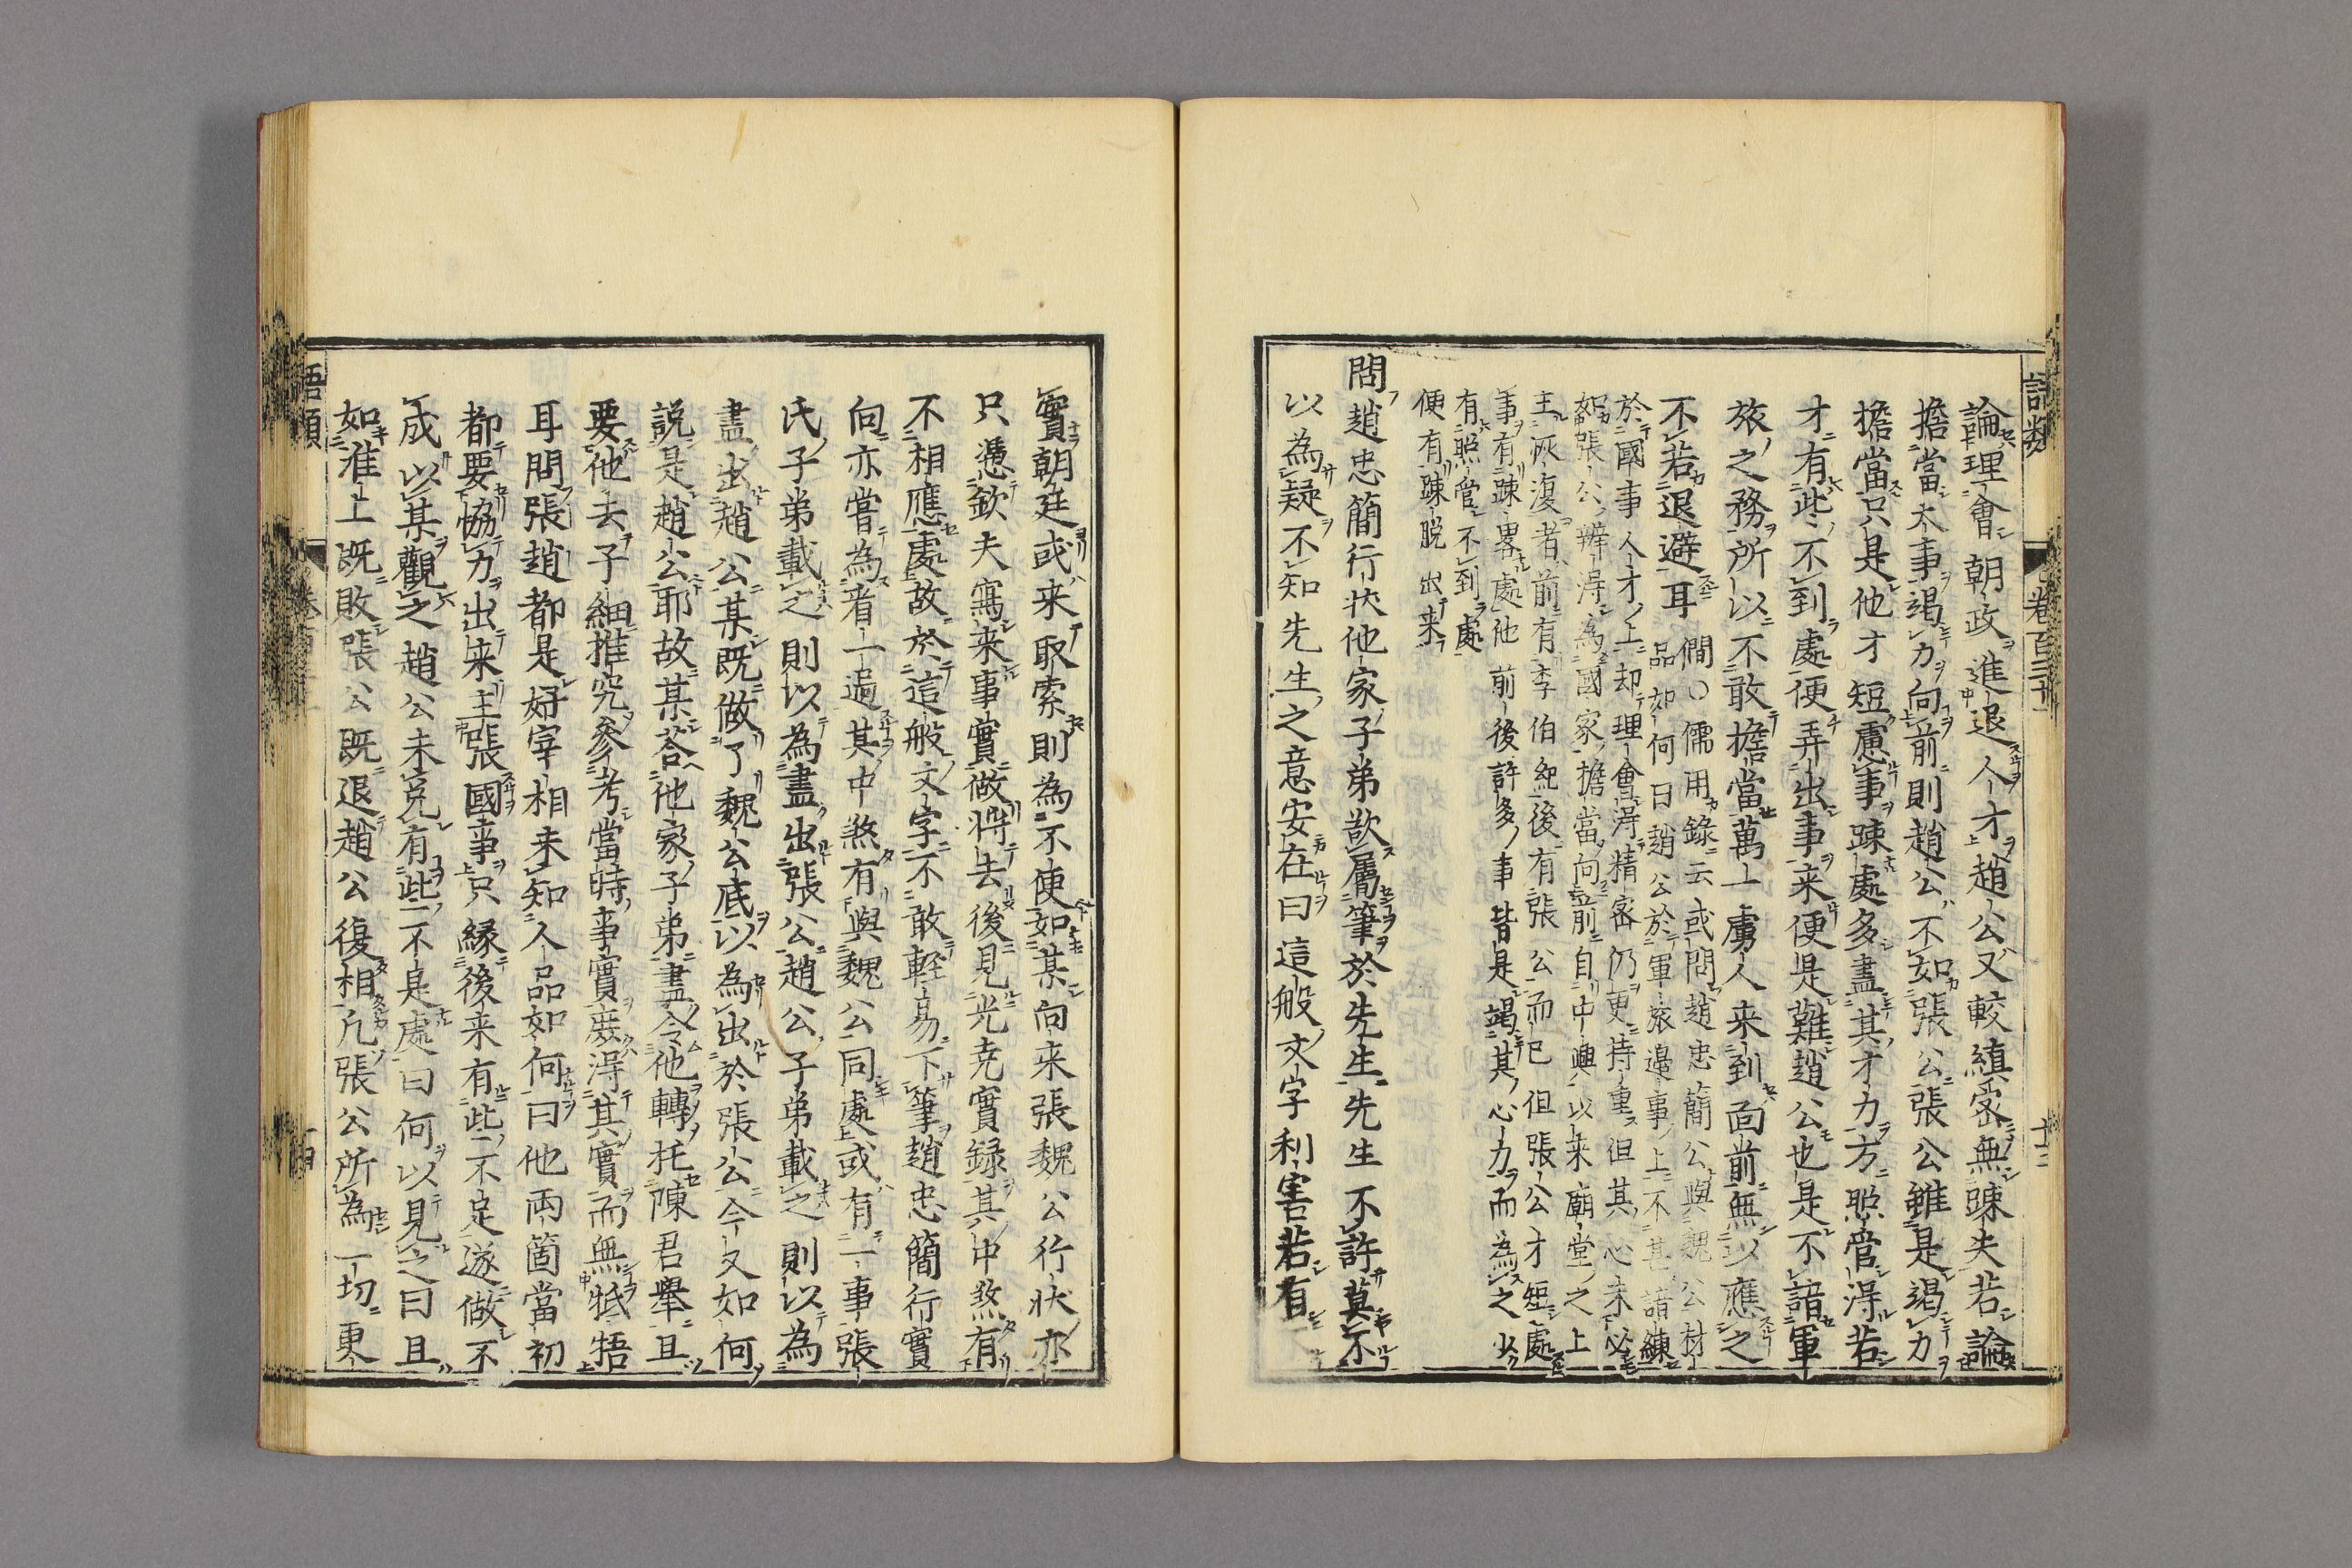 論理會朝政進退人才趙公又較縝密無踈失若論
擔當大事竭力向前則趙公不如張公張公雖是竭力
擔當只是他才短慮事踈處多盡其才力方照管得若
才有些不到處便弄出事来便是難趙公也是不諳軍
旅之務所以不敢擔當萬一虜人来到面前無以應之
不若退避耳
僩○儒用錄云或問趙忠簡公與魏公材
品如何曰趙公於軍旅邊事上不甚諳練
於國事人才上却理會得精密仍更持重但其心未必
如張公辨得為國家擔當向前自中興以来廟堂之上
主恢復者前有李伯紀後有張公而已但張公才短處
事有踈畧處他前後許多事皆是竭其心力而為之少
有照管不到處
便有踈脱出来
問趙忠簡行状他家子弟欲屬筆於先生先生不許莫不
以為疑不知先生之意安在曰這般文字利害若有
實朝廷或来取索則為不便如某向来張魏公行状亦
只憑欽夫寫来事實做将去後見光尭實録其中煞有
不相應處故於這般文字不敢輕易下筆趙忠簡行實
向亦嘗為看一遍其中煞有與魏公同處或有一事張
氏子弟載之則以為盡出張公趙公子弟載之則以為
盡出趙公某既做了魏公底以為出於張公今又如何
説是趙公耶故某答他家子弟盡令他轉托陳君舉且
要他去子細推究參考當時事實庶得其實而無牴牾
耳問張趙都是好宰相来知人品如何曰他兩箇當初
都要恊力出来主張國事只縁後来有些不足遂做不
成以某觀之趙公未免有些不是處曰何以見之曰且
如淮上既敗張公既退趙公復相凡張公所為一切更
語類
卷百三十一
十三
語類